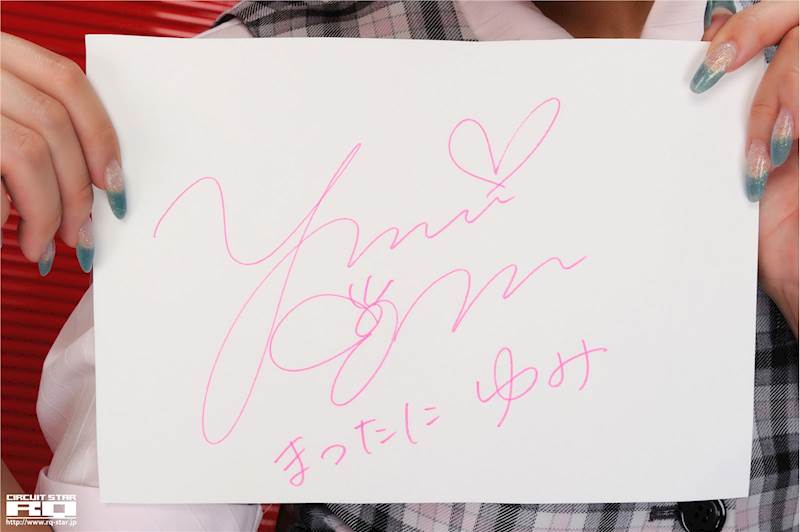 Yumi
まつたに ゆみ
CIRCUIT STAR
RQ
http://www.rq-star.jp